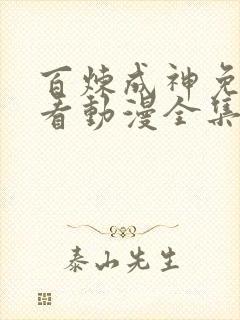 百炼成神免
看動漫全集
泰山先生